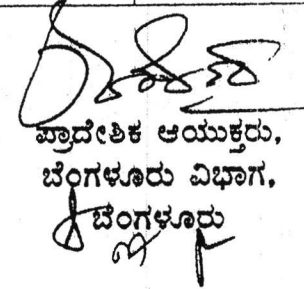 ಪ್ರಾದೇಶಿಕ ಆಯುಕ್ತರು,
ಬೆಂಗಳೂರು ವಿಭಾಗ,
ಬೆಂಗಳೂರು